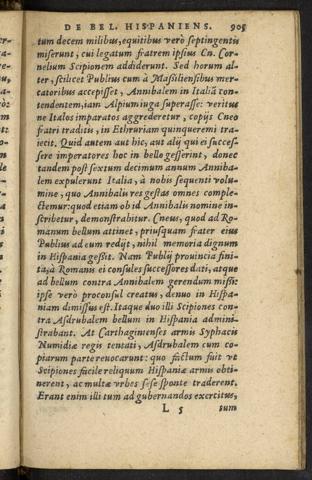 DE BEL. HISPANIENS. 905
tum decem milibus, equitibus verò septingentis
miserunt, cui legatum fratrem ipsius Cn. Cor-
nelium Scipionem addiderunt. Sed horum al-
ter, scilicet Publius cum à Maßiliensibus mer-
catoribus accepisset, Annibalem in Italiã con-
tendentem, iam Alpium iuga superasse: veritus
ne Italos imparatos aggrederetur, copijs Cneo
fratri traditis, in Ethruriam quinqueremi tra-
iecit. Quid autem aut hic, aut alij qui ei succes-
sere imperatores hoc in bello gesserint, donec
tandem post sextum decimum annum Anniba-
lem expulerunt Italia, à nobis sequenti volu-
mine, quo Annibalis res gestas omnes comple-
ctemur: quod etiam ob id Annibalis nomine in-
scribetur, demonstrabitur. Cneus, quod ad Ro-
manum bellum attinet, priusquam frater eius
Publius ad eum redijt, nihil memoria dignum
in Hispania geßit. Nam Publij prouincia fini-
ta, à Romanis ei consules successores dati, atque
ad bellum contra Annibalem gerendum mißi:
ipse verò proconsul creatus, denuo in Hispa-
niam dimissus est. Itaque duo illi Scipiones con-
tra Asdrubalem bellum in Hispania admini-
strabant. At Carthaginenses armis Syphacis
Numidiæ regis tentati, Asdrubalem cum co-
piarum parte reuocarunt: quo factum fuit vt
Scipiones facile reliquum Hispaniæ armis obti-
nerent, ac multæ vrbes sese sponte traderent.
Erant enim illi tum ad gubernandos exercitus,
L 5 sum